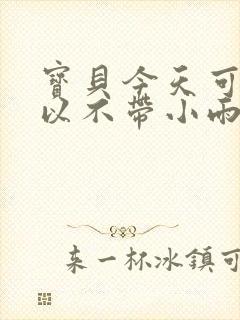 寶貝今天可
以不帶小雨
來一杯冰鎮可